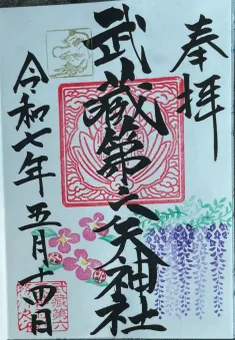 奉拝
武蔵第六天神社
令和七年五月十四日